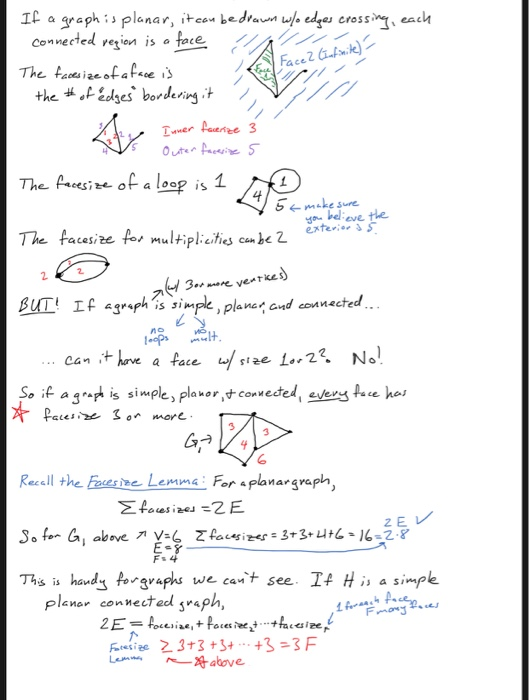 If a graph is planar, it can be drawn w/o edges crossing, each
connected region is a face
Face 1
Face 2 (Infinite)
The facesize of a face is
the # of "edges" bordering it
Inner facesize 3
Outer facesize 5
The facesize of a loop is 1
4
1
5 ← make sure
you believe the
exterior is 5.
The facesize for multiplicities can be 2
2
2
(w/ 3 or more vertices)
BUT! If a graph is simple, planar, and connected...
no loops
no mult.
... can it have a face w/ size 1 or 2? No!
So if a graph is simple, planar, + connected, every face has
facesize 3 or more.
G₁→
3
4
3
6
Recall the Facesize Lemma: For a planar graph,
Σ facesizes = 2E
2E ✓
So for G₁ above ↗ V=6 Σ facesizes = 3+3+4+6 = 16 = 2·8
E=8
F=4
This is handy for graphs we can't see. If H is a simple
planar connected graph,
1 for each face,
F many faces
2E = facesize₁ + facesize₂ + ... + facesize_F
Facesize
Lemma
≥ 3+3+3+ ... +3 = 3F
above